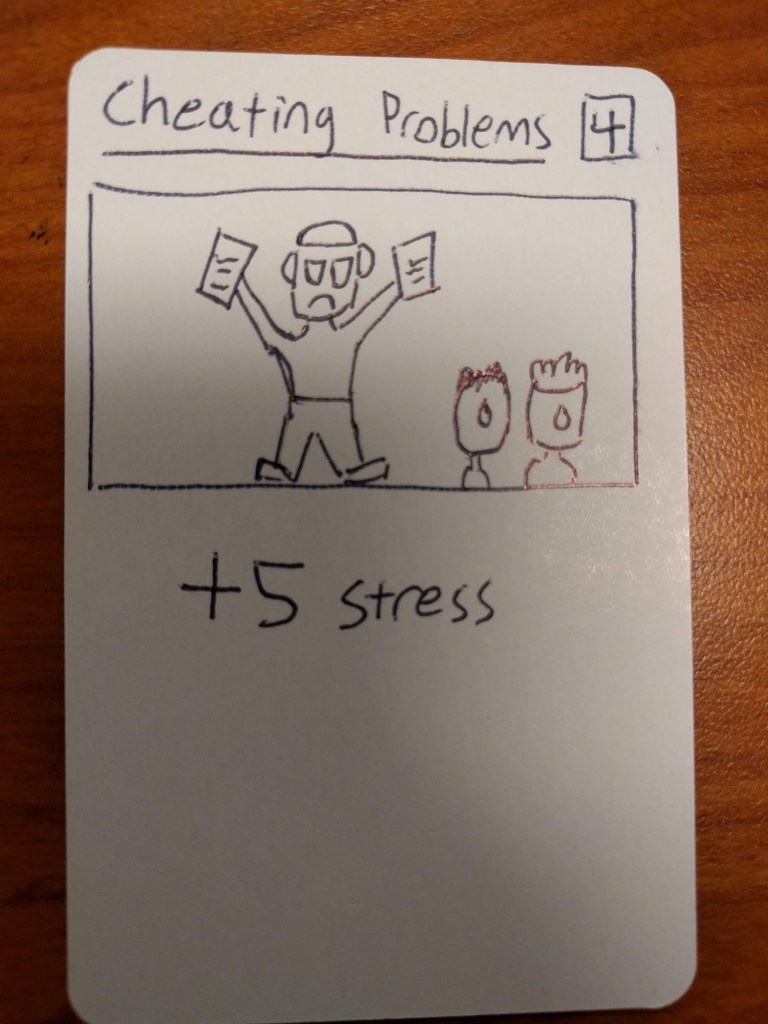 Cheating Problems 4
+5 stress